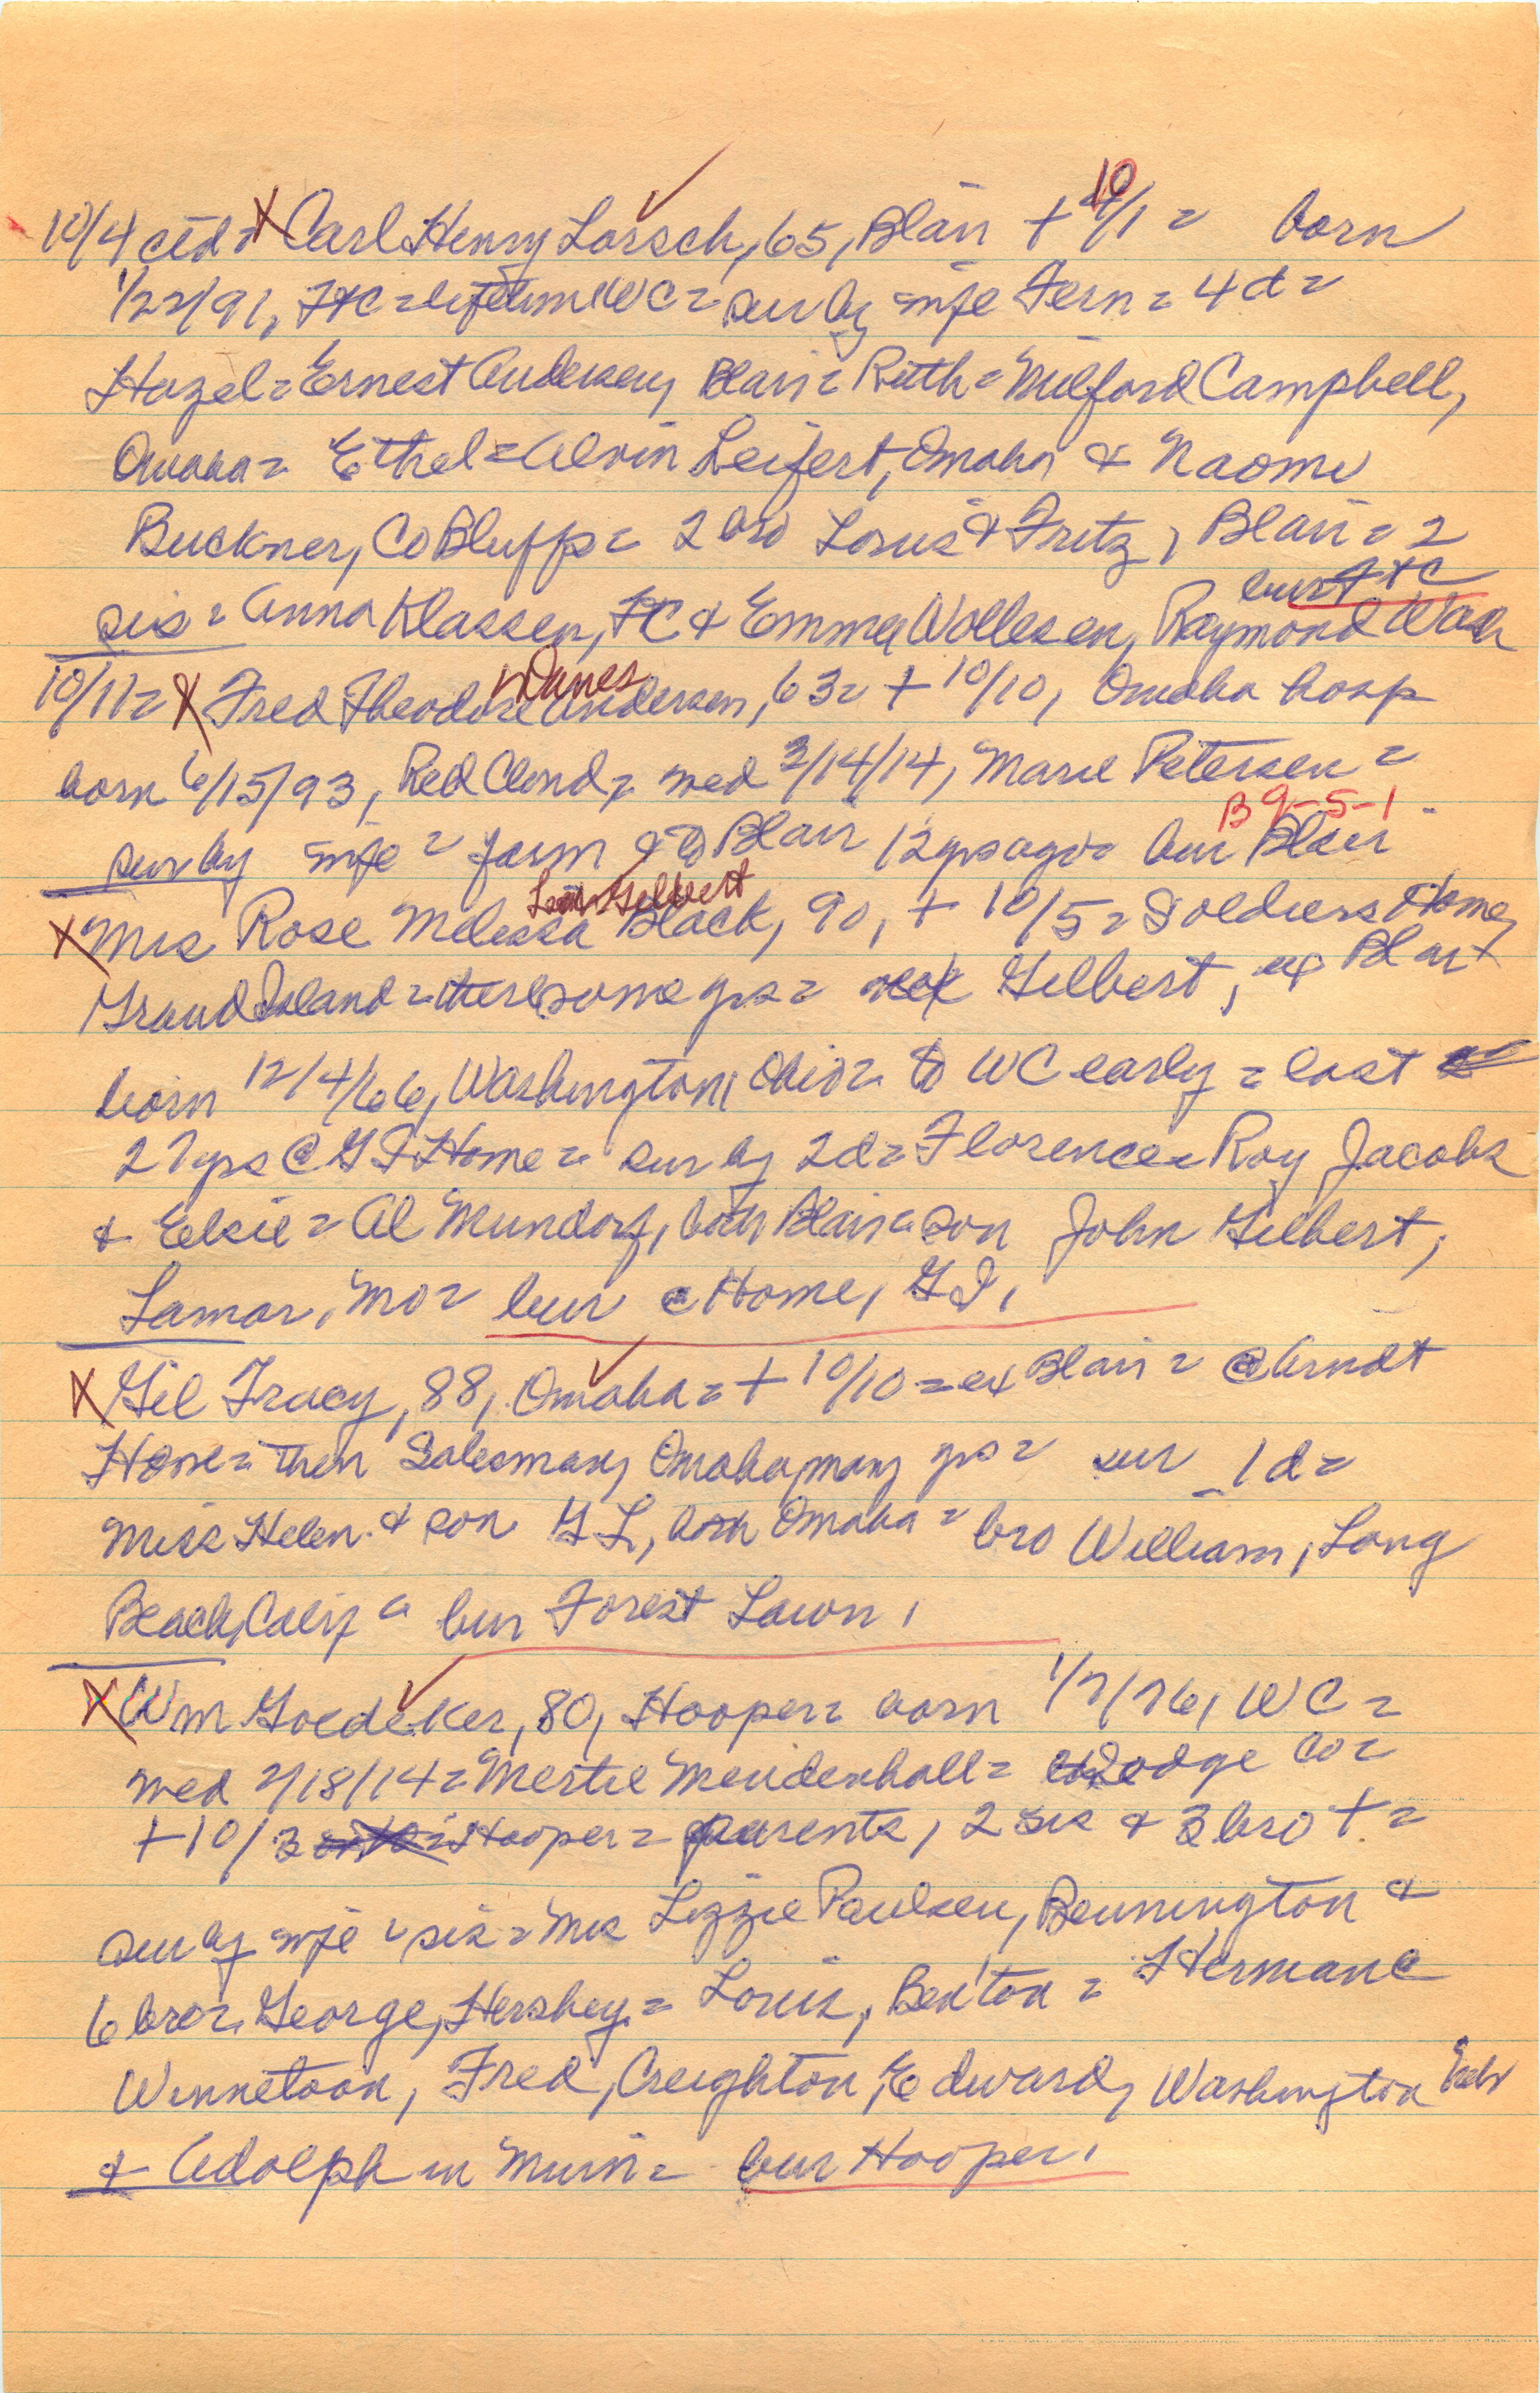 10/4 ctd = X Carl Henry Lorsch, 65, Blair + 10/1 = born
1/22/91, FtC = lifetime WC = sur by wife Fern = 4 d =
Hazel = Ernest Andersen, Blair = Ruth = Milford Campbell,
Omaha = Ethel = Alvin Leifert, Omaha & Naomi
Buckner, Co Bluffs = 2 bro Louis & Fritz, Blair = 2
bur FtC
sis = Anna Klassen, FC & Emma Wollesen, Raymond Wash
Danes
10/11 = X Fred Theodore Andersen, 63 = + 10/10, Omaha hosp
born 6/15/93, Red Cloud, = wed 2/14/14, Marie Petersen =
B 9-5-1
sur by wife = farm & to Blair 12 yrs ago = bur Blair
Gilbert
X Mrs Rose Melissa Black, 90, + 10/5 = Soldiers Home,
Grand Island = there some yrs = Gilbert, ex Blair
born 12/4/66, Washington, Ohio = to WC early = last
27 yrs @ GI Home = sur by 2 d = Florence = Roy Jacobs
& Elsie = Al Mundorf, both Blair = son John Gilbert,
Lamar, Mo = bur @ Home, GI,
X Gil Tracy, 88, Omaha = + 10/10 = ex Blair = @ Arndt
Home = then Salesman, Omaha, many yrs = sur 1 d =
Miss Helen & son GL, both Omaha = bro William, Long
Beach, Calif = bur Forest Lawn,
X Wm Goedeker, 80, Hooper = born 1/7/76, WC =
wed 2/18/14 = Mertie Mendenhall = Dodge Co =
+ 10/3 Hooper = parents, 2 sis & 3 bro + =
sur by wife = sis = Mrs Lizzie Paulsen, Bennington &
6 bro = George, Hershey = Louis, Benton = Herman @
Winnetoon, Fred, Creighton, Edward, Washington Nebr
& Adolph in Minn = bur Hooper,